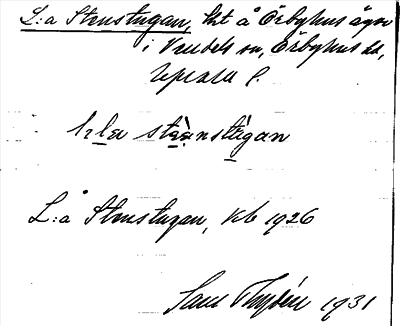 L:a Stenstugan, lht å Örbyhus ägor
i Vendels sn, Örbyhus hd,
Uppsala l.
stenstugan
L:a Stenstugan, kb 1926
1931